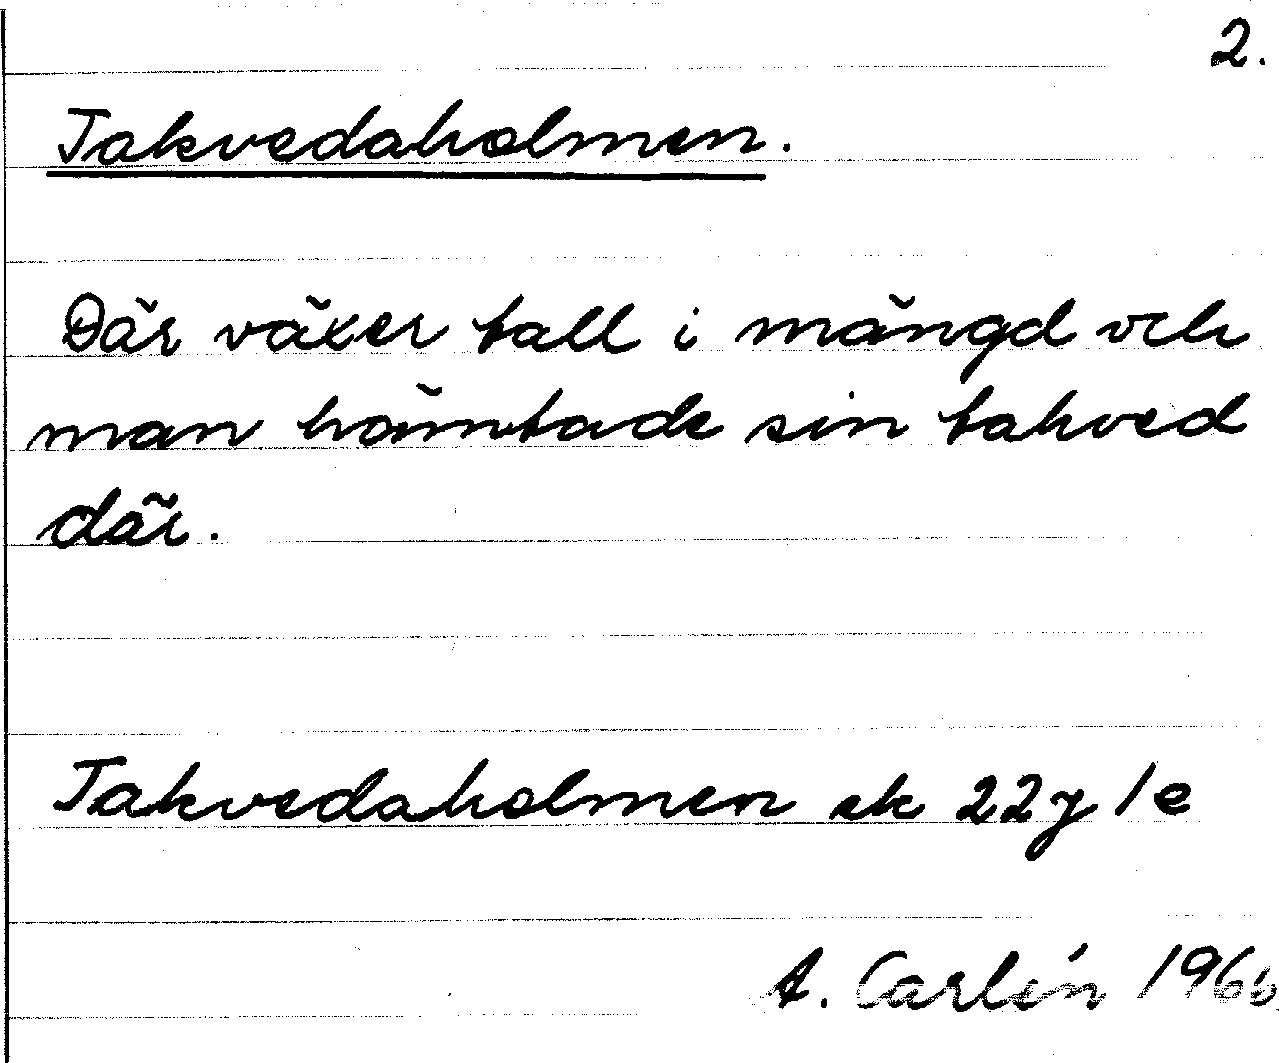 2.
Takvedaholmen.
Där växer tall i mängd och
man hämtade sin takved
där.
Takvedaholmen ek 22y 1e
A. Carlén 1966